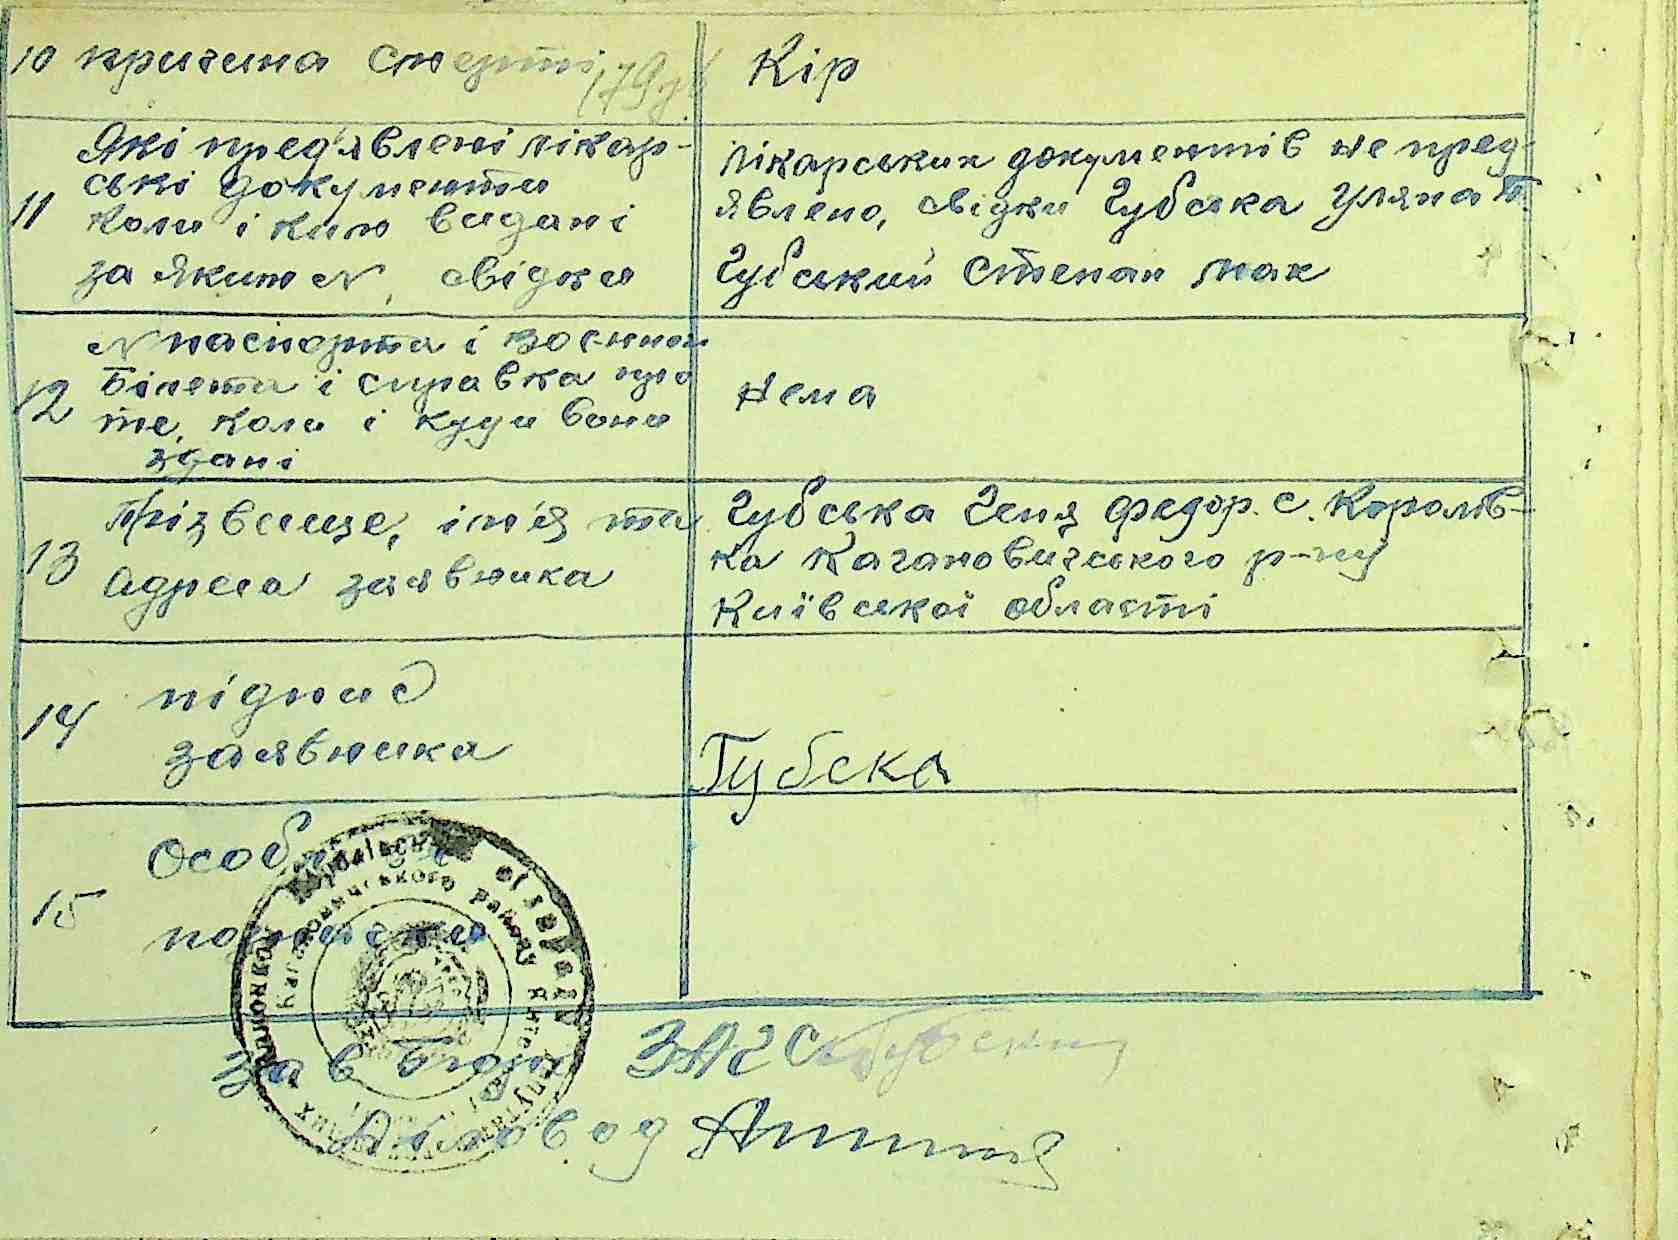 10 причина смерті Кір
11 Які пред'явлені лікар-
ські документи
коли і ким видані
за яким №, свідки
лікарських документів не пред-
явлено, свідки Губська Уляна
Губський Степан Мак
12 № паспорта і воєнного
білета і справка про
те, коли і куди вони
здані
нема
13 Прізвище, ім'я та
адреса заявника
Губська Геня Федор. с. Королів-
ка Кагановичського р-ну
Київської області
14 підпис
заявника
Губска
15 Особливі
помітки
зав бюро ЗАГС
Діловод